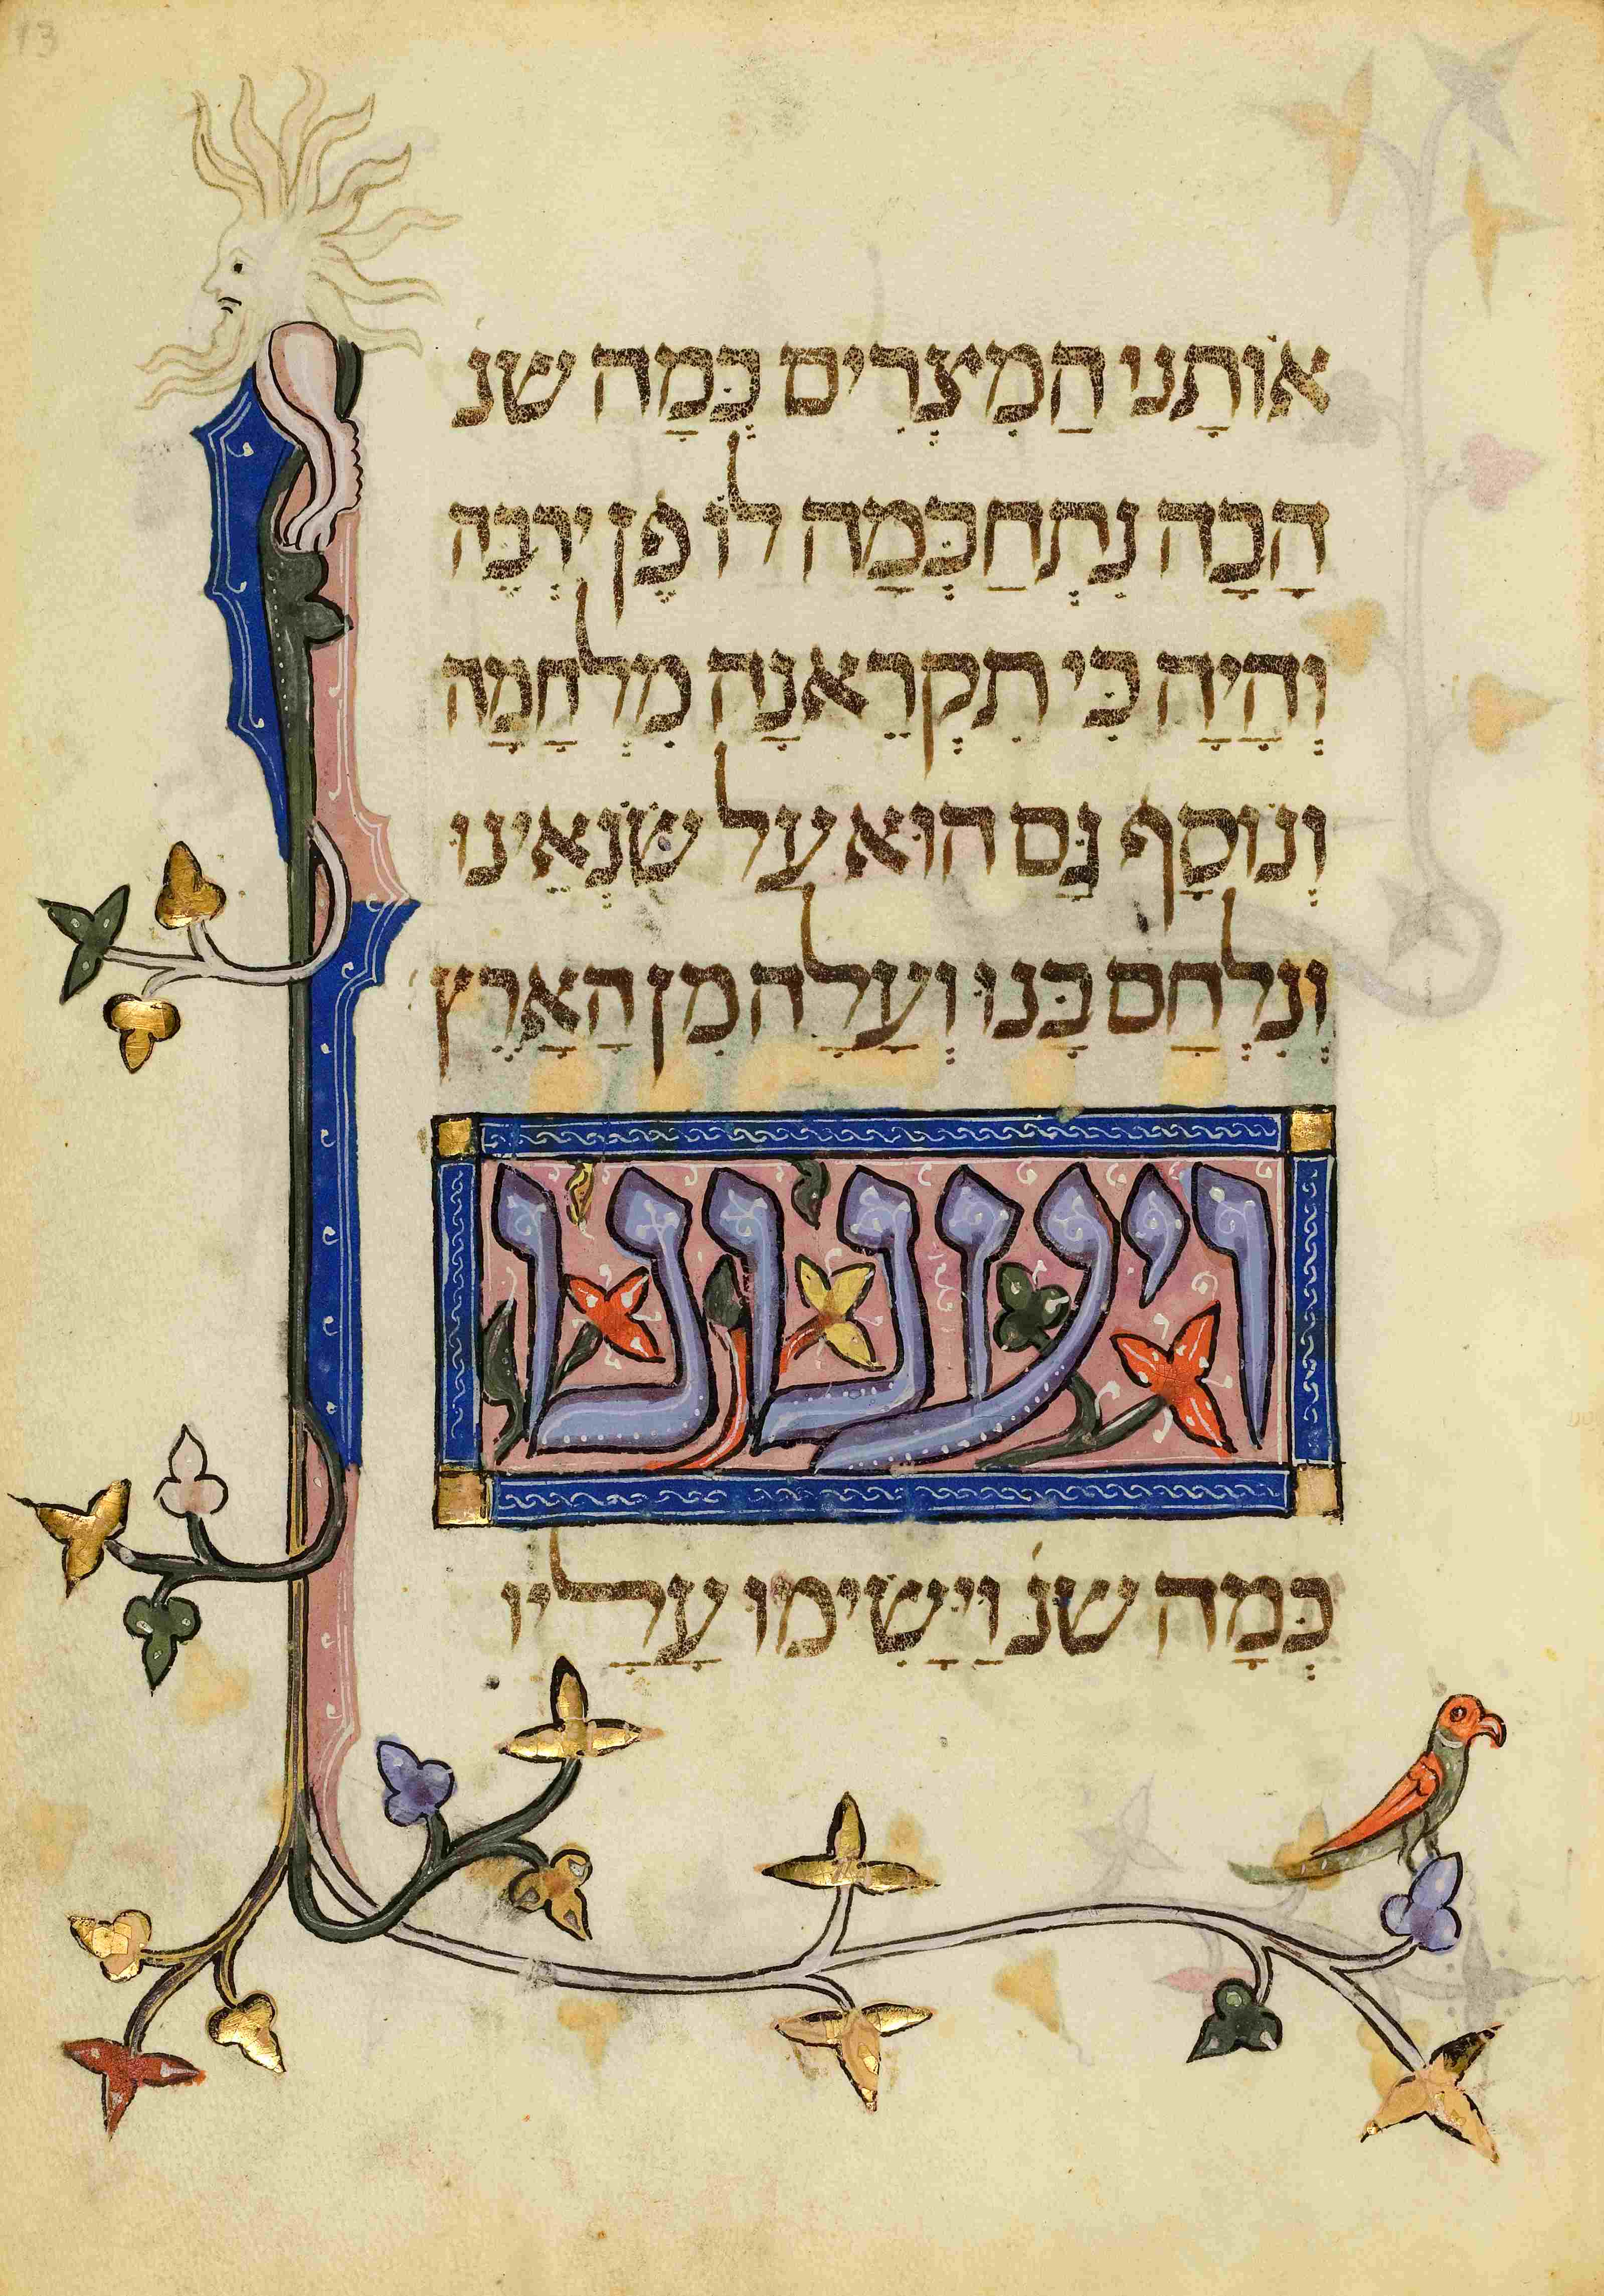 13
אוֹתָנוּ הַמִצְרִים כְּמָה שנ׳
הָבָה נִתְחַכְּמָה לוֹ פֶּן יִרְבֶּה
וְהָיָה כִּי תִקְרֶאנָה מִלְחָמָה
וְנוֹסָף גַּם הוּא עַל שׂנְאֵינוּ
וְנִלְחַם בָּנוּ וְעָלָה מִן הָאָרֶץ
ויענונו
כְּמָה שנ׳ וַיָּשִׂימוּ עָלָיו